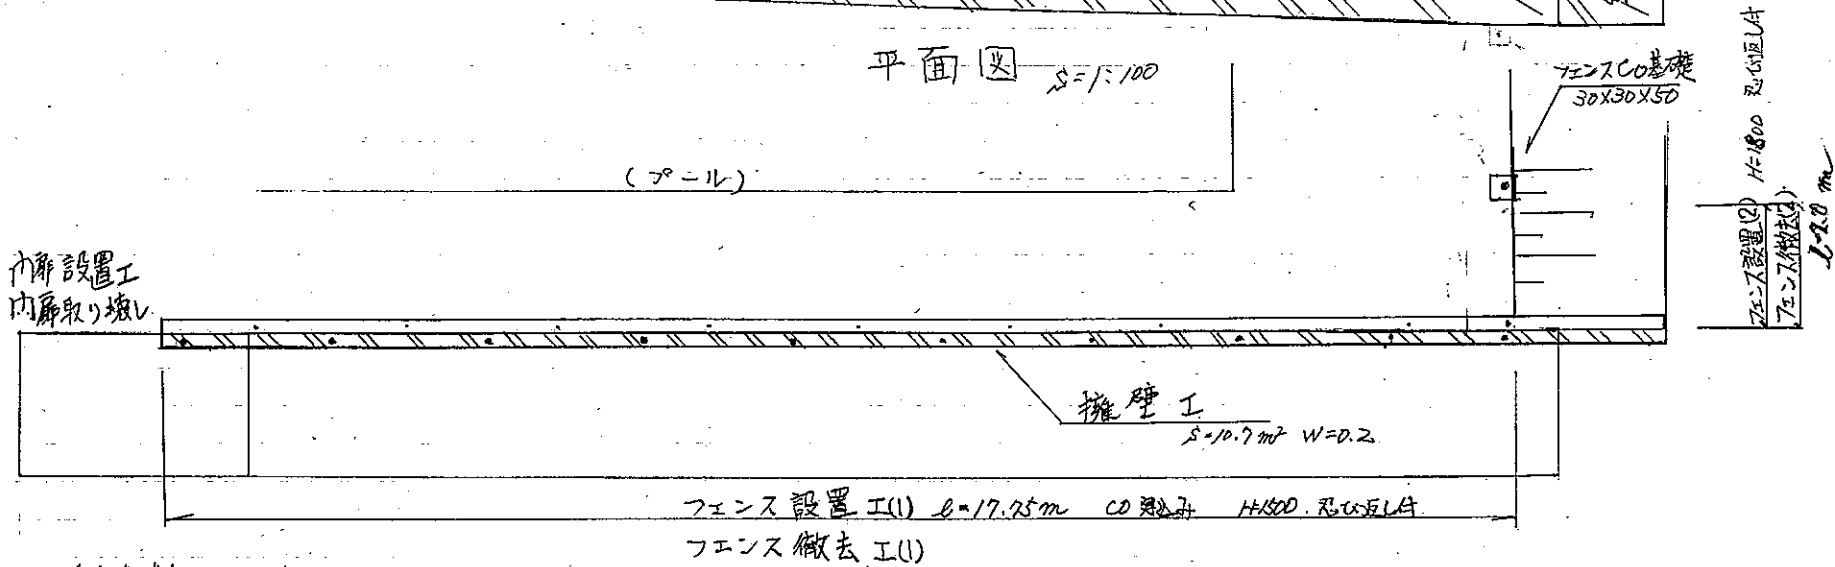 平面図 S=1:100
フェンスCO基礎
30×30×50
(プール)
門扉設置工
門扉取り壊し
擁壁工
S=10.7m² W=0.2
フェンス設置工(1) ℓ=17.75m CO建込み H=1500 忍び返し付
フェンス撤去工(1)
フェンス設置(2) H=1800 忍び返し付
フェンス撤去(2)